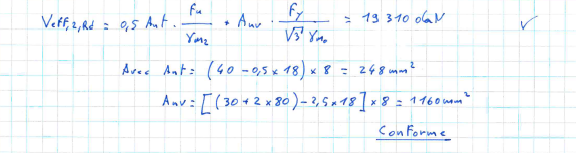 Veff,2,Rd = 0,5 Ant · fu/γM2 + Anv · fy/√3 γM0 = 19 310 daN ✓
Avec Ant = (40 - 0,5 x 18) x 8 = 248 mm²
Anv = [(30 + 2 x 80) - 2,5 x 18] x 8 = 1160 mm²
Conforme